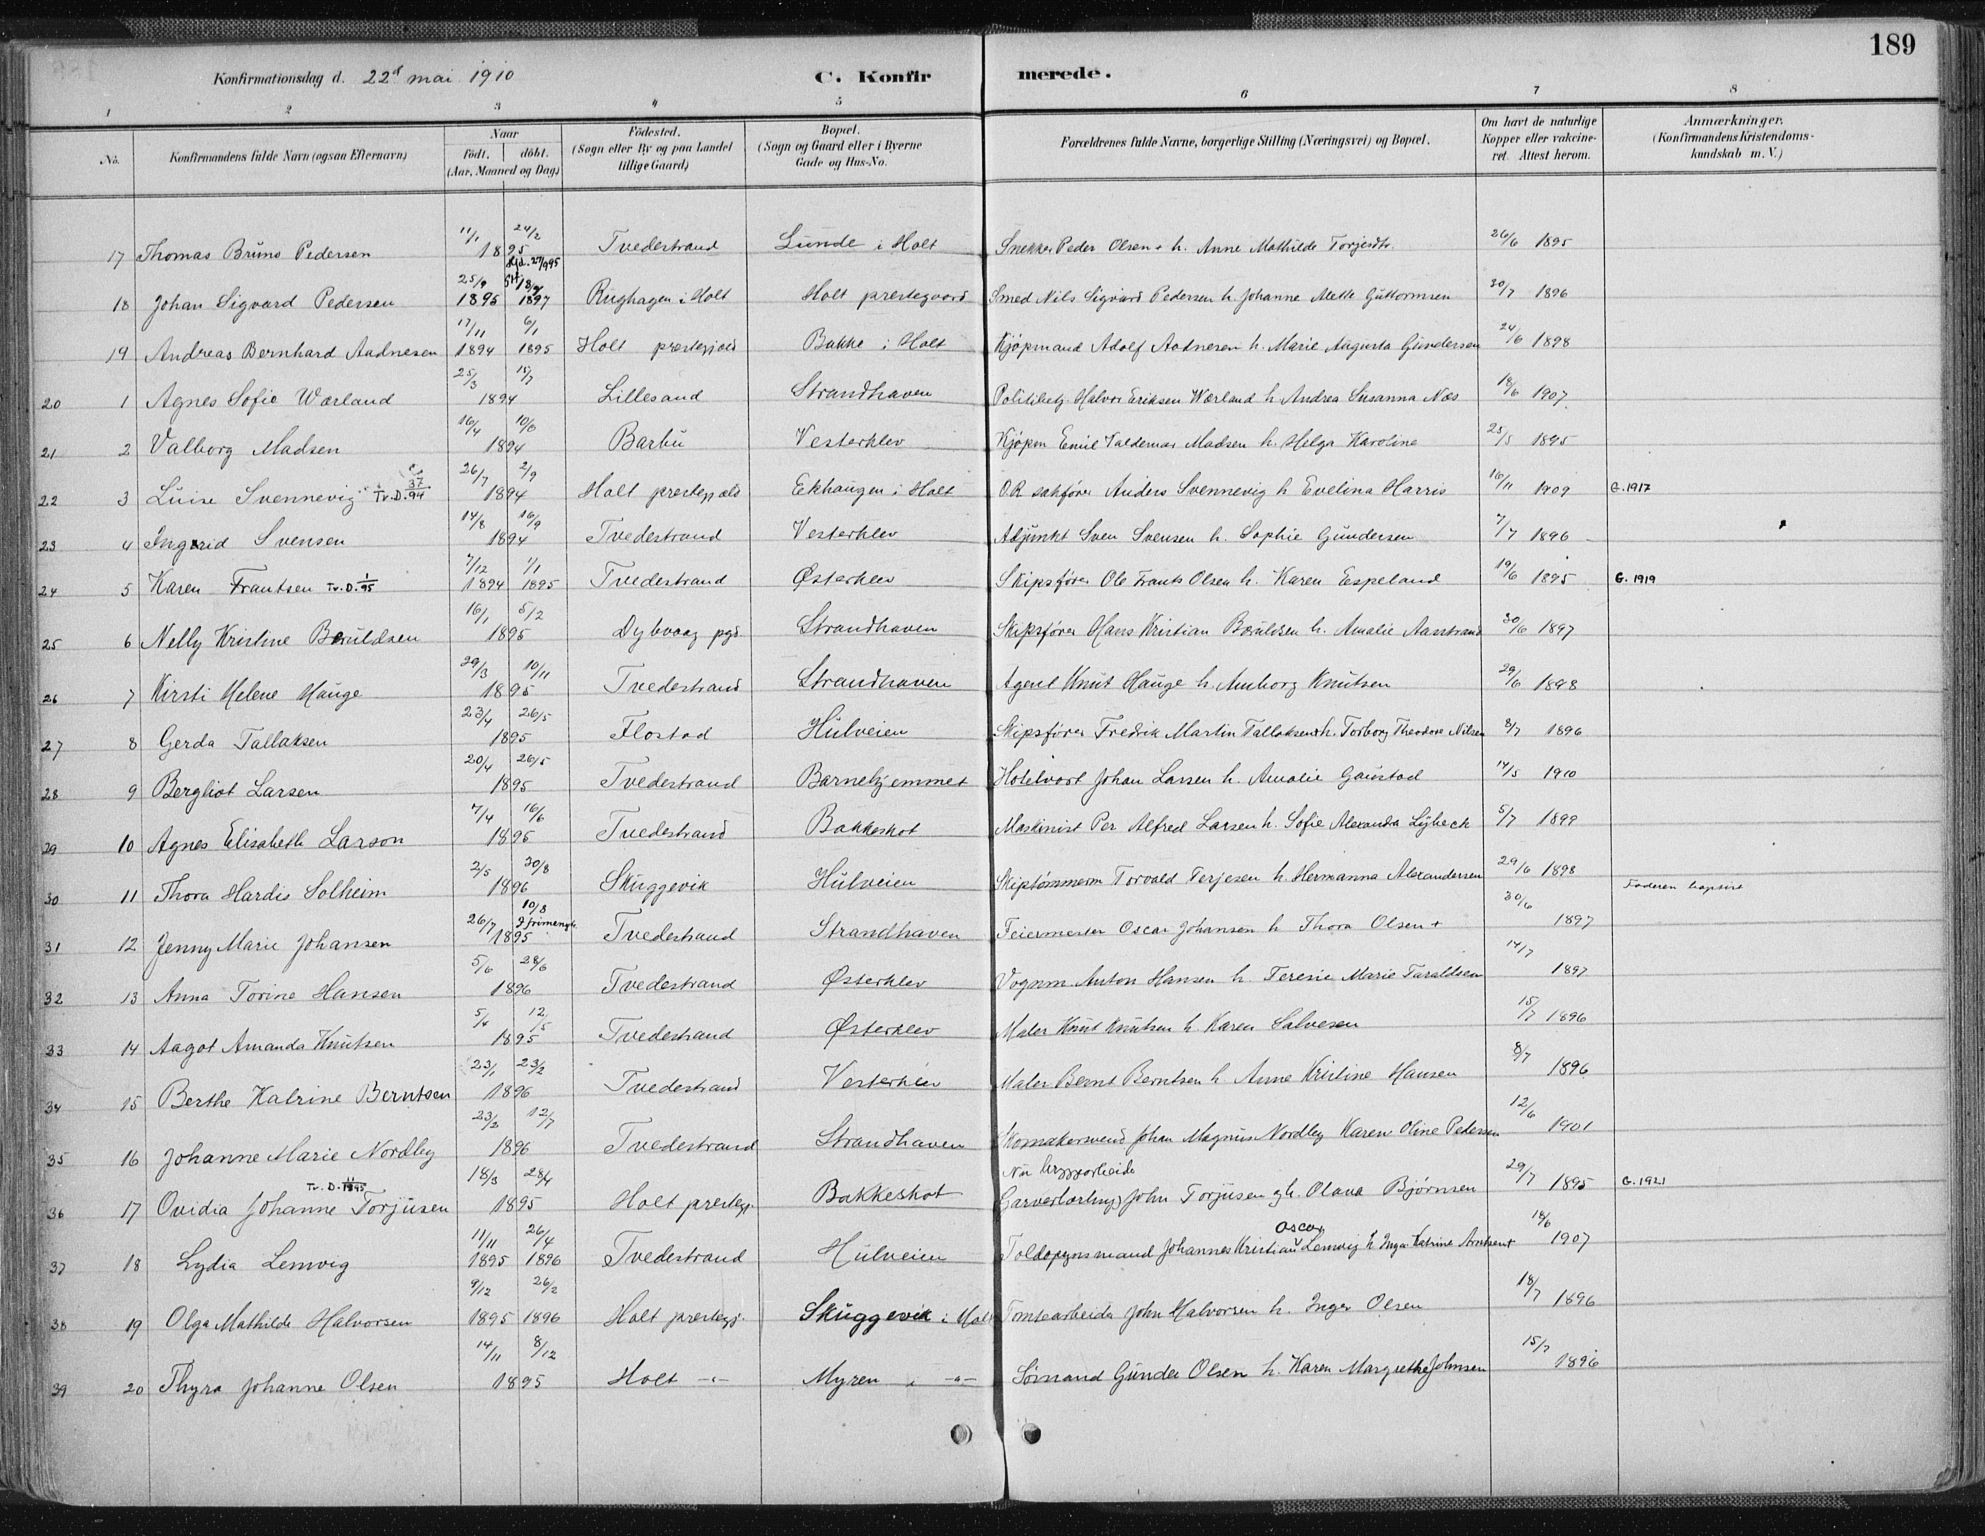 189
Konfirmationsdag d. 22d mai 1910 C. Konfirmerede.
1 2 3 4 5 6 7 8
No. Konfirmandens fulde Navn (ogsaa Efternavn) Naar födt. döbt. (Aar, Maaned og Dag) Födested. (Sogn eller By og paa Landet tillige Gaard) Bopæl. (Sogn og Gaard eller i Byerne Gade og Hus-No. Forældrenes fulde Navne, borgerlige Stilling (Næringsvei) og Bopæl. Om havt de naturlige Kopper eller vakcineret. Attest herom. Anmærkninger. (Konfirmandens Kristendomskundskab m. V.)
17 Thomas Bruno Pedersen 11/1 24/2 1895 Tvedestrand Lunde i Holt Snekker Peder Olsen + h. Anne Mathilde Torjesdtr. 26/6 1895
18 Johan Sigvard Pedersen 25/9 1895 18/7 1897 Ringhagen i Holt Holt prestegaard Smed Nils Sigvard Pedersen h. Johanne Mette Guttormsen 30/7 1896
19 Andreas Bernhard Aadnesen 17/11 1894 6/1 1895 Holt prestegjeld Bakke i Holt Kjøpmand Adolf Aadnesen h. Marie Augusta Gundersen 24/6 1898
20 1 Agnes Sofie Wærland 25/3 15/7 1894 Lillesand Strandhaven Politibetj. Halvor Eriksen Wærland h. Andrea Susanna Næs 18/6 1907
21 2 Valborg Madsen 16/4 10/6 1894 Barbu Vesterklev Kjøpm Emil Valdemar Madsen h. Helga Karoline 25/5 1895
22 3 Luise Svennevig Tv. D. 37/94 26/7 2/9 1894 Holt prestegjeld Ekhaugen i Holt O.R sakfører Anders Svennevig h Evelina Harris 16/11 1909 G. 1917
23 4 Ingrid Svensen 14/8 16/9 1894 Tvedestrand Vesterklev Adjunkt Sven Svensen h. Sophie Gundersen 7/7 1896
24 5 Karen Frantsen Tv. D. 1/95 7/12 1894 1/1 1895 Tvedestrand Østerklev Skipsfører Ole Frants Olsen h. Karen Espeland 19/6 1895 G. 1919
25 6 Nelly Kristine Boruldsen 16/1 5/2 1895 Dybvaag pgd. Strandhaven Skipsfører Hans Kristian Boruldsen h. Amalie Aasstrand 30/6 1897
26 7 Kirsti Helene Hauge 29/3 10/11 1895 Tvedestrand Strandhaven Agent Knut Hauge h. Amborg Knutsen 29/6 1898
27 8 Gerda Tallaksen 23/4 26/5 1895 Flostad Hulveien Skipsfører Fredrik Martin Tallaksen h. Torborg Theodore Nilsen 8/7 1896
28 9 Bergliot Larsen 20/4 26/5 1895 Tvedestrand Barnehjemmet Hotelvært Johan Larsen h. Amalie Gaustad 14/5 1910
29 10 Agnes Elisabeth Larson 7/4 16/6 1895 Tvedestrand Bakkeskot Maskinist Per Alfred Larsen h. Sofie Alexanda Lybeck 5/7 1899
30 11 Thora Hardis Solheim 2/5 30/8 1896 Skuggevik Hulveien Skiptømmerm Torvald Terjesen h Hermanna Alexandersen 29/6 1898 Faderen baptist
31 12 Jenny Marie Johansen 26/7 10/8 1895 Tvedestrand Strandhaven Feiermester Oscar Johansen h Thora Olsen + 30/6 1897
32 13 Anna Torine Hansen 5/6 28/6 1896 Tvedestrand Østerklev Vognm Anton Hansen h. Teresie Marie Taraldsen 14/7 1897
33 14 Aagot Amanda Knutsen 5/4 12/5 1895 Tvedestrand Østerklev Maler Knut Knutsen h. Karen Salvesen 15/7 1896
34 15 Berthe Katrine Berntsen 23/1 23/2 1896 Tvedestrand Vesterklev Maler Bernt Berntsen h Anne Kristine Hansen 8/7 1896
35 16 Johanne Marie Nordby 23/2 12/7 1896 Tvedestrand Strandhaven Skomakersvend Johan Magnus Nordby Karen Oline Pedersen 12/6 1901
36 17 Ovidia Johanne Torjusen Tv. D. 11/1895 18/3 28/4 1895 Holt prestegj. Bakkeskot Nu bryggarbeider Garverlærling John Torjusen og h. Olava Bjørnsen 29/7 1895 G. 1921
37 18 Lydia Lemvig 11/11 1895 26/4 1896 Tvedestrand Hulveien Toldopynsmand Johannes Kristian Oscar Lemvig h Inga Katrine Arntsen + 18/6 1907
38 19 Olga Mathilde Halvorsen 9/12 1895 26/2 1896 Holt prestegj. Skuggevik i Holt Tomtearbeider John Halvorsen h. Inger Olsen 18/7 1896
39 20 Thyra Johanne Olsen 14/11 8/12 1895 Holt -"- Myren " -"- Sömand Gunder Olsen h. Karen Margrethe Johnsen 15/7 1896